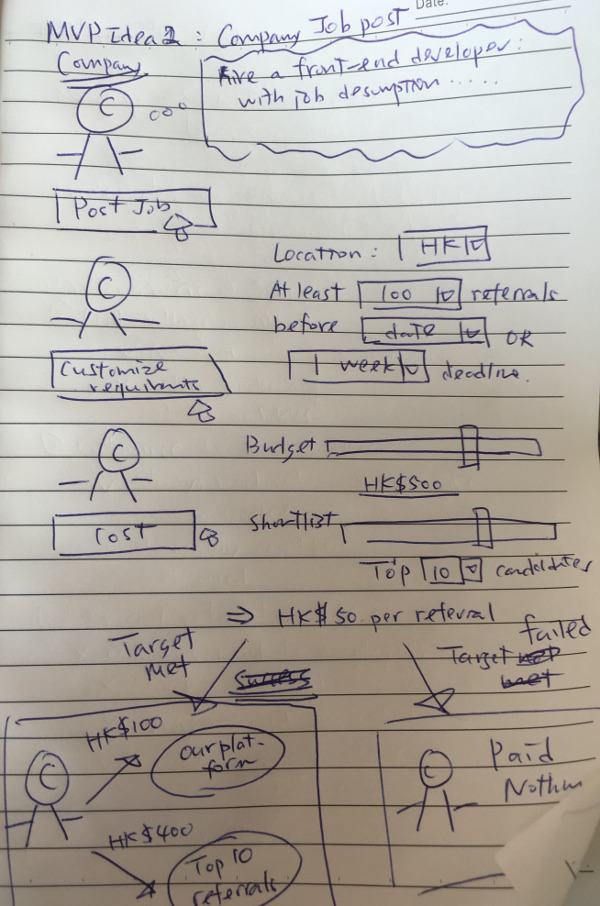 Date:
MVP Idea 2 : Company Job post
Company
Hire a front-end developer :
with job desumption .....
C
Post Job
Location : HK
C
At least 100 referrals
before date OR
1 week deadline.
Customize
requirments
C
Budget
HK$500
Cost
Shortlist
Top 10 candidates
⇒ HK$50 per referral
Target
met
Success
Target met failed
met
HK$100
our plat-
form
C
HK$400
Top 10
referrals
C
Paid
Nothin